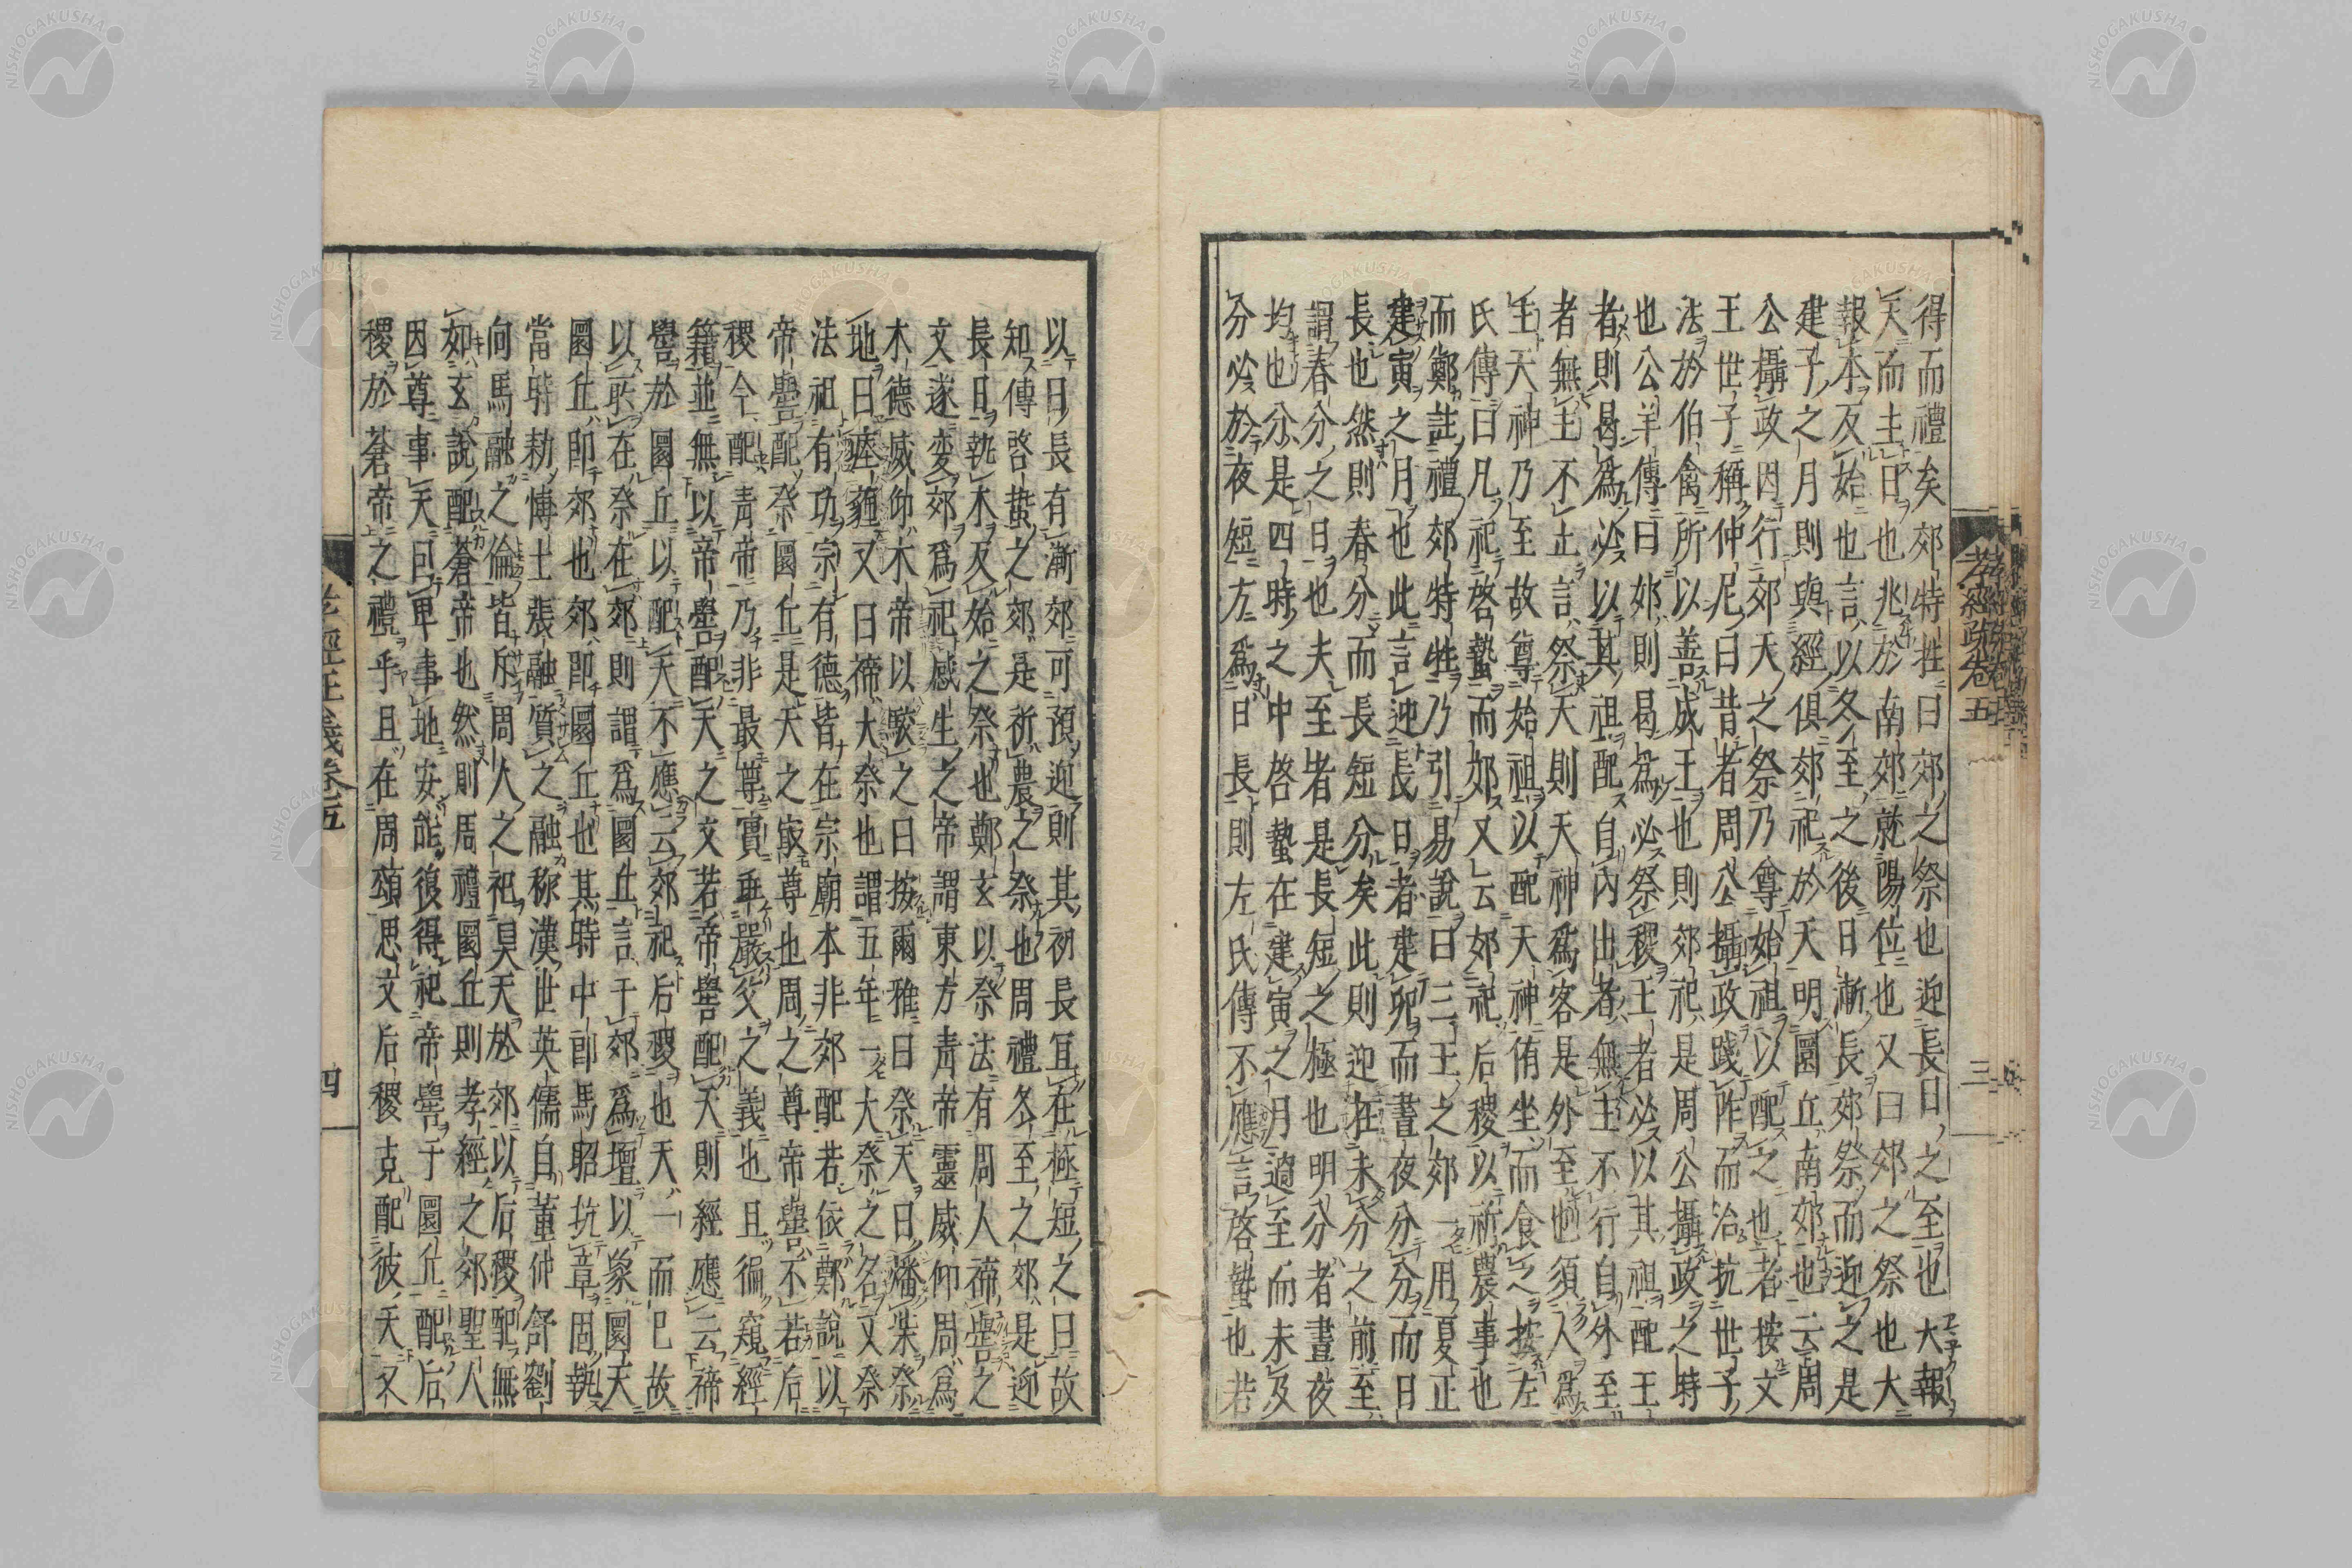 得而禮矣郊特牲曰郊之祭也迎長日之至也大報
天而主日也兆於南郊就陽位也又曰郊之祭也大
報本反始也言以冬至之後日漸長郊祭而迎之是
建子之月則與經俱郊祀於天明圜丘南郊也云周
公攝政因行郊天之祭乃尊始祖以配之也者按文
王世子稱仲尼曰昔者周公攝政踐阼而治抗世子
法於伯禽所以善成王也則郊祀是周公攝政之時
也公羊傳曰郊則曷爲必祭稷王者必以其祖配王
者則曷爲必以其祖配自內出者無主不行自外至
者無主不止言祭天則天神爲客是外至也須人爲
主天神乃至故尊始祖以配天神侑坐而食之按左
氏傳曰凡祀啓蟄而郊又云郊祀后稷以祈農事也
而鄭註禮郊特牲乃引易說曰三王之郊一用夏正
建寅之月也此言迎長日者建卯而晝夜分分而日
長也然則春分而長短分矣此則迎在未分之前至
謂春分之日也夫至者是長短之極也明分者晝夜
均也分是四時之中啓蟄在建寅之月過至而未及
分必於夜短方爲日長則左氏傳不應言啓蟄也若
孝經疏卷五
三
以日長有漸郊可預迎則其初長宜在極短之日故
知傳啓蟄之郊是祈農之祭也周禮冬至之郊是迎
長日執木反始之祭也鄭玄以祭法有周人禘嚳之
文遂變郊爲祀感生之帝謂東方青帝靈威仰周爲
木德威仰木帝以駮之曰按爾雅曰祭天曰燔柴祭
地曰瘞薶又曰禘大祭也謂五年一大祭之名又祭
法祖有功宗有德皆在宗廟本非郊配若依鄭說以
帝嚳配祭圜丘是天之最尊也周之尊帝嚳不若后
稷今配青帝乃非最尊實乖嚴父之義也且徧窺經
籍並無以帝嚳配天之文若帝嚳配天則經應云禘
嚳於圜丘以配天不應云郊祀后稷也天一而已故
以所在祭在郊則謂爲圜丘言于郊爲壇以象圜天
圜丘即郊也郊即圜丘也其時中郎馬昭抗章固執
當時勑博士張融質之融稱漢世英儒自董仲舒劉
向馬融之倫皆斥周人之祀昊天於郊以后稷配無
如玄說配蒼帝也然則周禮圜丘則孝經之郊聖人
因尊事天因卑事地安能復得祀帝嚳于圜丘配后
稷於蒼帝之禮乎且在周頌思文后稷克配彼天又
孝經正義卷五
四
NISHOGAKUSHA